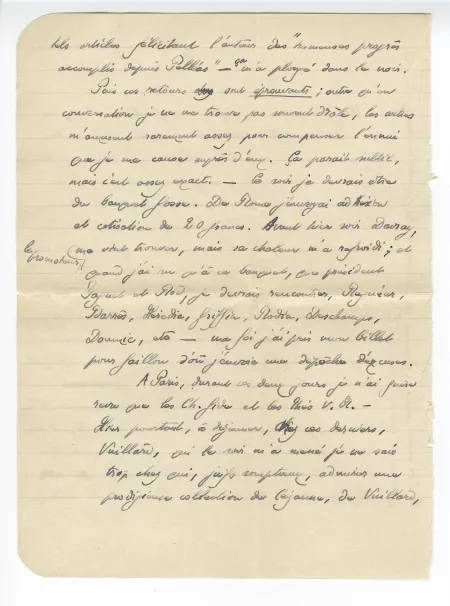 tels articles félicitant l'auteur des "immenses progrès
accomplis depuis Palléas" – ça m'a plongé dans le noir.
Puis ces retours sont éprouvants ; outre qu'en
conversation je ne me trouve pas souvent drôle, les autres
m'amusent rarement assez pour compenser l'ennui
que je me cause auprès d'eux. Ça paraît subtil,
mais c'est assez exact. – Ce soir je devrais être
du banquet Fosse. De Rome j'envoyai adhésion
et cotisation de 20 francs. Avant hier soir Dauray,
(le promoteur) me vint trouver, mais sa chaleur m'a refroidi ; et
quand j'ai vu qu'à ce banquet, que président
et Rod, je devrais rencontrer, Régnier,
Barrès, Hérédia, Griffin, Rodin, Deschamps,
Doumic, etc – ma foi j'ai pris mon billet
pour d'où j'envoie une dépêche d'excuses.
A Paris, durant ces deux jours je n'ai guère
revu que les Ch. Gide et les Théo V. R. –
Hier pourtant, à déjeuner, chez ces derniers,
Vuillard, qui le soir m'a mené je ne sais
trop chez qui, admirer une
prodigieuse collection de Cézanne, de Vuillard,